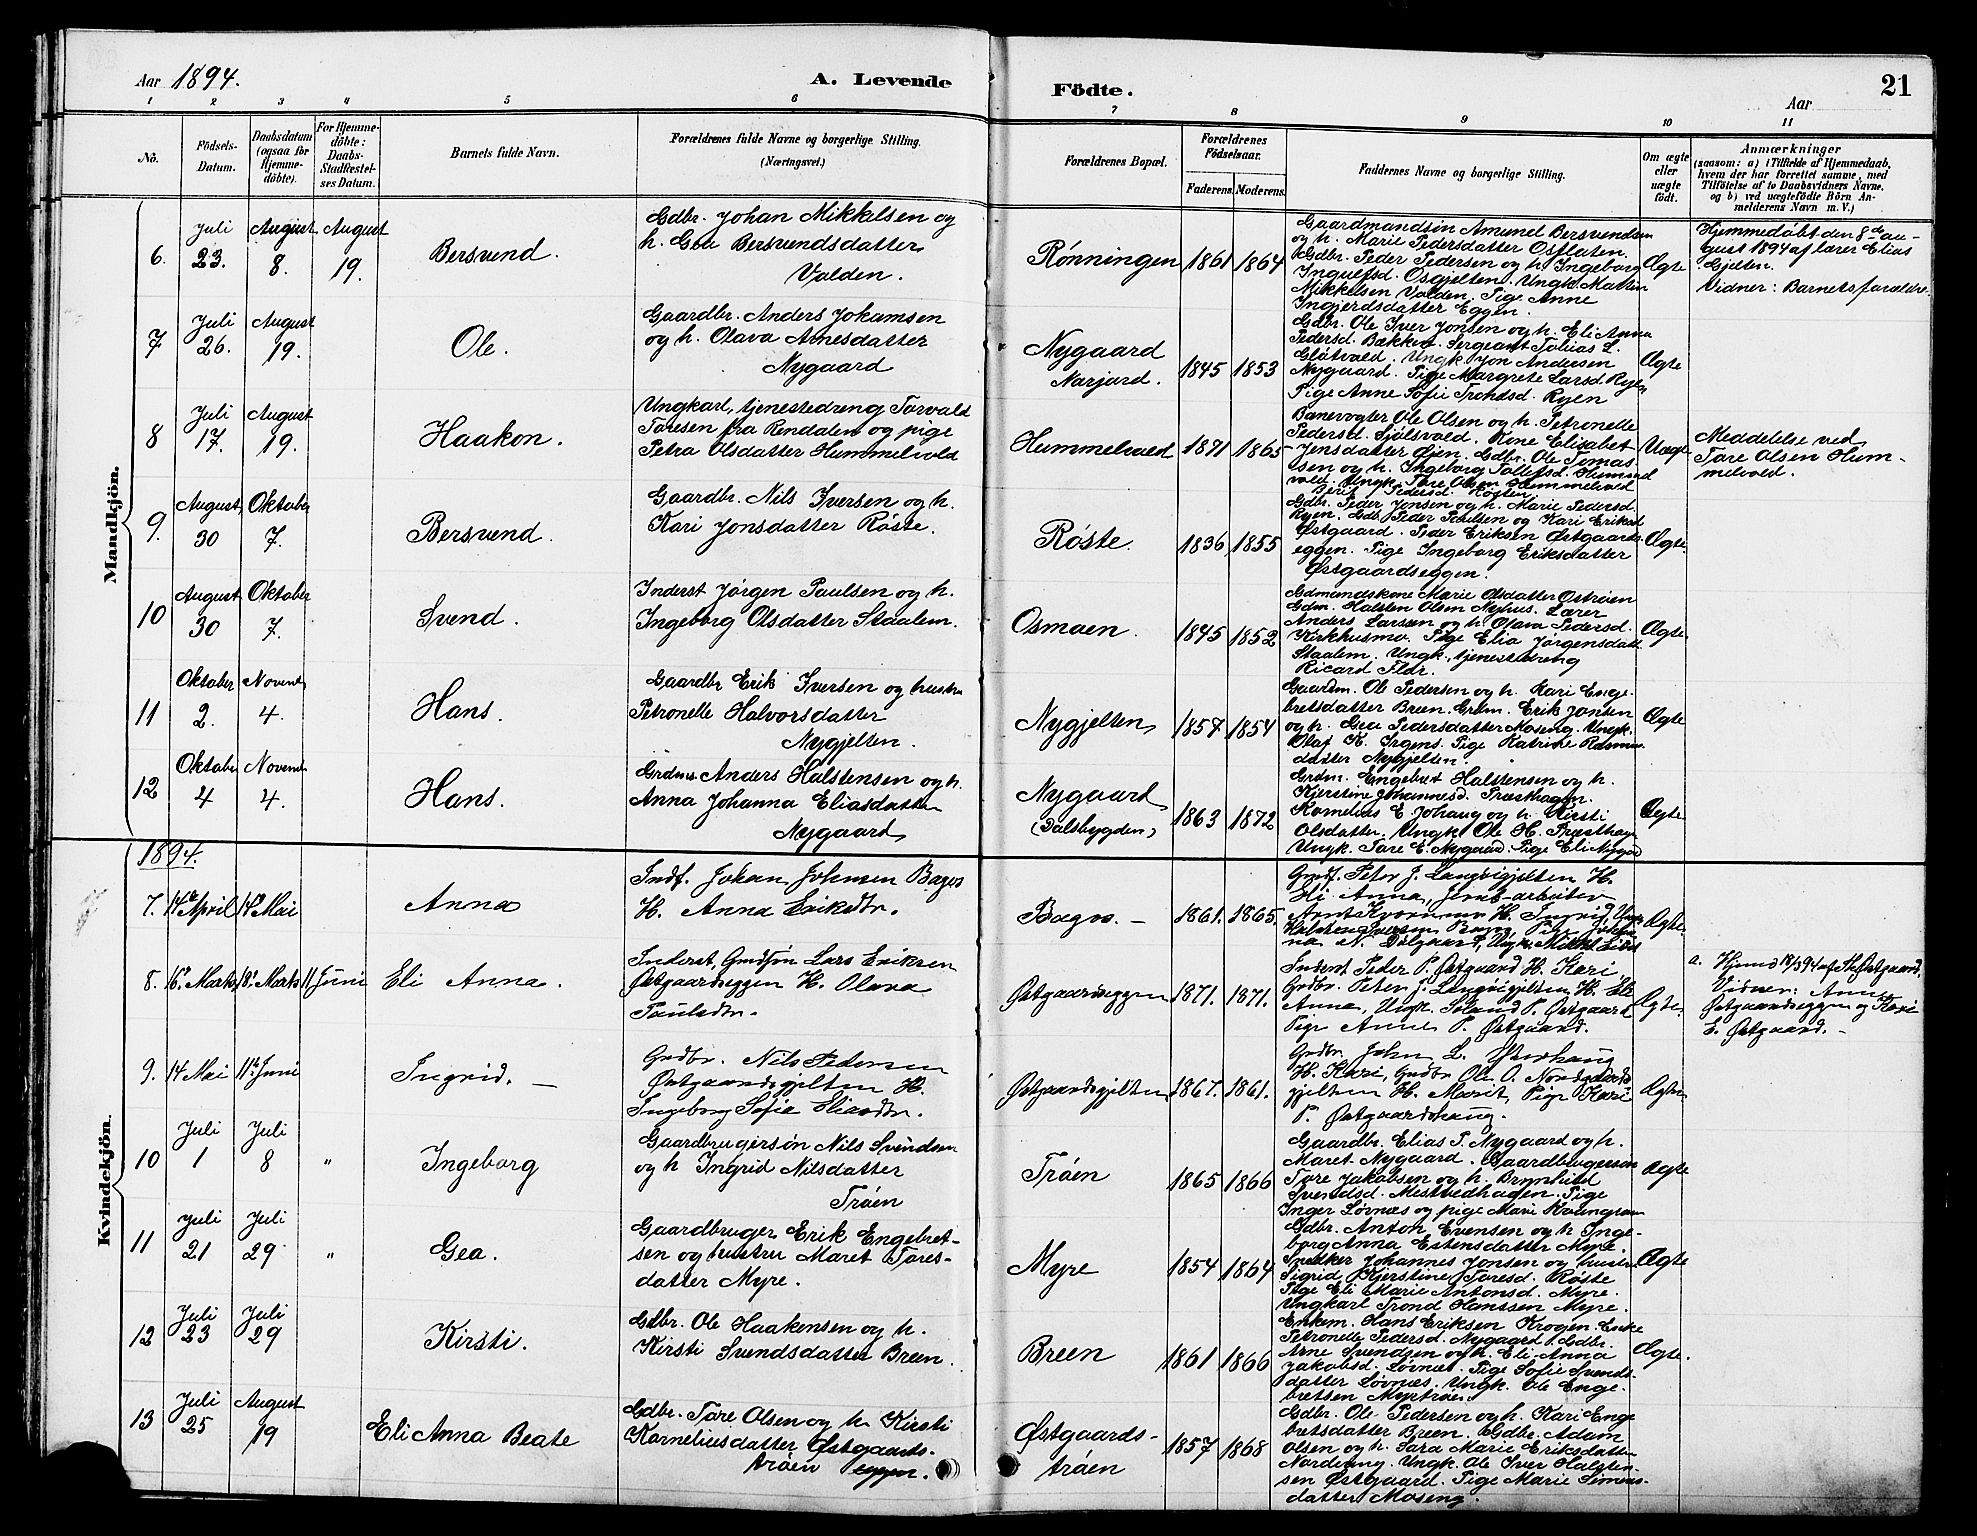 Aar 1894.
A. Levende
Födte.
Aar
21
1 2 3 4 5 6 7 8 9 10 11
No.
Födsels-
Datum.
Daabsdatum
(ogsaa for
Hjemme-
döbte).
For Hjemme-
döbte:
Daabs-
Stadfæstel-
ses Datum.
Barnets fulde Navn.
Forældrenes fulde Navne og borgerlige Stilling.
(Næringsvei.)
Forældrenes Bopæl.
Forældrenes
Födselsaar.
Faderens. Moderens.
Faddernes Navne og borgerlige Stilling.
Om ægte
eller
uægte
födt.
Anmærkninger
(saasom: a) i Tilfælde af Hjemmedaab,
hvem der har forrettet samme, med
Tilföielse af to Daabsvidners Navne.
og b) ved uægtefödte Börn An-
melderens Navn m. V.)
Mandkjön.
6. Juli 23. August 8. August 19. Bersvend.
Gdbr. Johan Mikkelsen og
h. Goa Bersvendsdatter
Valden.
Rønningen 1861 1864
Gaardmandsøn Amund Bersvendsen
og h. Marie Pedersdatter Osflaten.
Gdbr. Peder Pedersen og h. Ingeborg
Osgjelten. Ungk. Marten
Mikkelsen Valden. Pige Anne
Ingjerdsdatter Eggen.
Ægte
Hjemmedøbt den 8de au-
gust 1894 af lærer Elias
Gjelten.
Vidner: Barnets forældre.
7 Juli 26. August 19. Ole.
Gaardbr. Anders Johansen
og h. Olava Arnesdatter
Nygaard
Nygaard
Narjord. 1845 1853
Gdbr. Ole Iver Jonsen og h. Eli Anna
Pedersd. Bækken. Sergeant Tobias L.
Glåtvold. Ungk. Jon Andersen
Nygaard. Pige Margrete Larsd. Ryen
Pige Anne Sofie Trondsd. Ryen
Ægte
8 Juli 17. August 19. Haakon.
Ungkarl, tjenestedreng Torvald
Toresen fra Rendalen og pige
Petra Olsdatter Hummelvold
Hummelvold 1871 1865
Banevogter Ole Olsen og h. Petronelle
Pedersd. Sjölsvold. Kone Elisabet
Jensdatter Øien. Gdbr. Ole Tomas-
sen og h. Ingeborg Tollefsd. Hummel
vold. Ungk. Tore Olsen Hummelvold
Berit Pedersd. Røsten
Uægte
Meddelelse ved
Tore Olsen Hum-
melvold.
9. August 30 Oktober 7. Bersvend.
Gaardbr. Nils Iversen og h.
Kari Jonsdatter Røste.
Røste. 1836 1855
Gdbr. Peder Jonsen og h. Marie Pedersd.
Ryen. Gdb. Peder Paulsen og Kari Eriksd
Østgaard. Peder Eriksen Østgaards-
eggen. Pige Ingeborg Eriksdatter
Østgaardseggen.
Ægte.
10 August 30 Oktober 7. Svend.
Inderst Jørgen Paulsen og h.
Ingeborg Olsdatter Staalem.
Osmoen. 1845 1852
Gdmandskone Marie Olsdatter Ostrøen
Gdm. Halsten Olsen Nyhus. Lærer
Anders Larsen og h. Olava Pedersd.
Kirkhusmo. Pige Elia Jørgensdatt.
Staalem. Ungk., tjenestedreng
Ricard Flor.
Ægte.
11 Oktober 2. Novemb 4. Hans.
Gaardbr Erik Iversen og hustru
Petronelle Halvorsdatter
Nygjelten.
Nygjelten 1857 1854
Gaardm. Ole Pedersen og h. Kari Enge-
bretsdatter Breen. Grdm. Erik Jonsen
og h. Gea Pedersdatter Moseng. Ungk.
Olaf K. Irgens. Pige Katrine Rasmus
datter Nygjelten.
Ægte
12 Oktober 4 Novemb 4. Hans.
Grdms. Anders Halstensen og h.
Anna Johanna Eliasdatter
Nygaard
Nygaard
(Dalsbygden) 1863 1872
Grdm. Engebret Halstensen og h.
Kjerstine Johannesd. Præsthagen.
Kornelius E. Johaug og h. Kirsti
Olsdatter. Ungk. Ole H. Præsthagen
Ungk. Tore E. Nygaard. Pige Eli Nygaard
Ægte
Kvindekjön.
1894.
7. 14de April 14de Mai Anna
Indf. Johan Johnsen Bagos
H. Anna Eriksdtr.
Bagos. — 1861. 1865.
Grdf. Peter J. Langvigjelten H.
Eli Anna, Jernb-arbeider
H. Ingrid, Ungk
Pige
Ægte.
8. 16de Marts 18de Marts 11 Juni Eli Anna.
Inderst, Grdsøn Lars Eriksen
Østgaardseggen H. Olava
Paulsdtr.
Østgaardseggen 1871. 1871.
Inderst Peder P. Østgaard H. Kari,
Grdbr. Peter J. Langvigjelten H. Eli
Anna, Ungk. P. Østgaard
Pige Anne P. Østgaard.
Ægte.
a. Hjemd 18/3 94 af Østgaard.
Vidner: Anne
Østgaardseggen og Kari
E. Østgaard. —
9. 14 Mai 11te Juni Ingrid. —
Grdbr. Nils Pedersen
Østgaardsgjelten H.
Ingeborg Sofie Eliasdtr.
Østgaardsgjelten 1867. 1861.
Grdbr. John L. Ytterhaug
H. Kari, Grdbr Ole O. Nordgaards-
gjelten H. Marit, Pige Kari
P. Østgaardshaug.
Ægte
10 Juli 1 Juli 8 " Ingeborg
Gaardbrugersøn Nils Svendsen
og h Ingrid Nilsdatter
Trøen
Trøen 1865 1866
Gaardbr. Elias T. Nygaard og h.
Maret Nygaard. Gaardbrugersøn
Tore Jakobsen og h. Brynhild
Svendsd. Mestvedhagen. Pige
Inger Løvnæs og pige Mari Kvangraven
Ægte
11 Juli 21 Juli 29 " Gea.
Gaardbruger Erik Engebret-
sen og hustru Maret Tores-
datter Myre.
Myre 1854 1864
Gdbr. Anton Evensen og h Inge-
borg Anna Estensdatter Myre.
Snedker Johannes Jonsen og hustru
Sigrid Kjerstine Toresd. Røste
Pige Eli Marie Antonsd. Myre.
Ungkarl Trond Hanssen Myre.
Ægte
12 Juli 23 Juli 29 Kirsti.
Gdbr. Ole Haakensen og h.
Kirsti Svendsdatter Breen.
Breen 1861 1866
Enkem. Hans Eriksen Krogen. Enke
Petronelle Pedersd. Nygaard. Gdbr.
Arne Svendsen og h. Eli-Anna
Jakobsd. Løvnæs. Pige Sofie Svends-
datter Løvnæs. Ungk. Ole Enge-
bretsen Myrtrøen.
Ægte.
13 Juli 25 August 19 Eli Anna Beate
Gdbr. Tore Olsen og h. Kirsti
Korneliusdatter Østgaards-
trøen eggen.
Østgaards-
trøen 1857 1868
Gdbr. Ole Pedersen og h. Kari Enge
bretsdatter Breen. Gdbr. Adam
Olsen og h. Sara Marie Eriksdatter
Nordvang. Ungk. Ole Iver Halsten-
sen Østgaard. Pige Marie Simens-
datter Moseng.